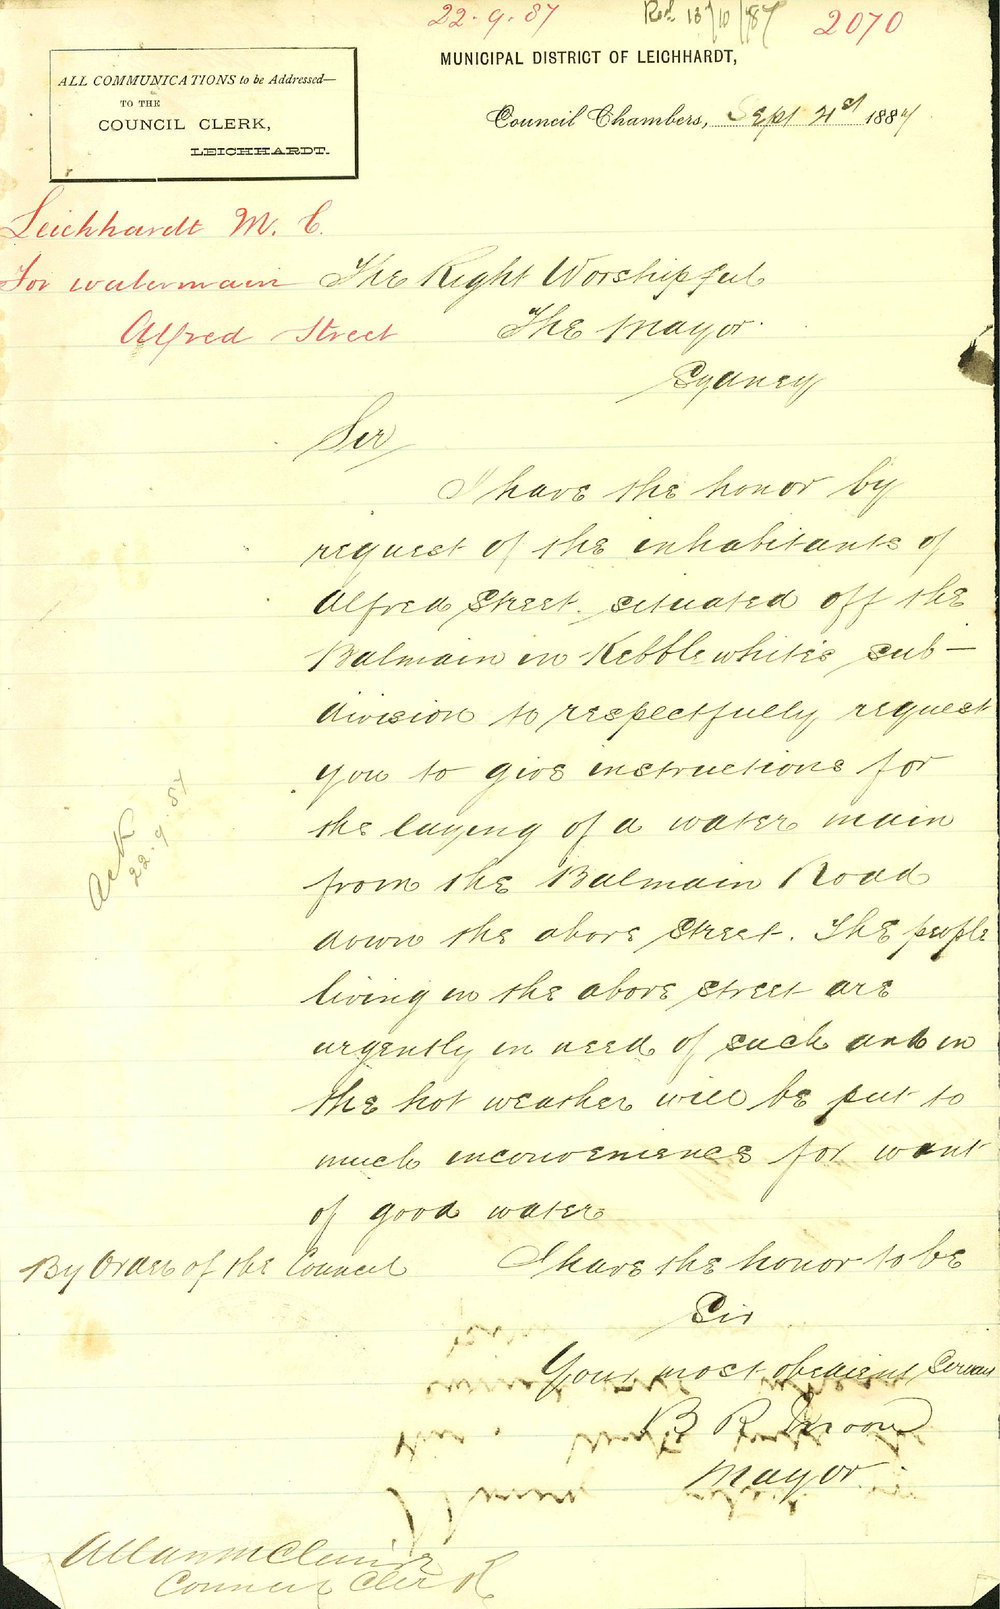 22.9.87
Recd 13/10/87
2070
MUNICIPAL DISTRICT OF LEICHHARDT,
ALL COMMUNICATIONS to be Addressed—
TO THE
COUNCIL CLERK,
LEICHHARDT.
Council Chambers, Sept 21st 1887
Leichhardt M. C.
For watermain
Alfred Street
The Right Worshipful
The Mayor
Sydney
Sir
I have the honor by
request of the inhabitants of
Alfred Street situated off the
Balmain in Kebblewhite's sub-
division to respectfully request
you to give instructions for
the laying of a water main
from the Balmain Road
down the above Street. The people
living in the above street are
urgently in need of such and in
the hot weather will be put to
much inconvenience for want
of good water
Ack
22.9.87
By Order of the Council
I have the honor to be
Sir
Your most obedient Servant
B R
Mayor
Allan
Council Clerk